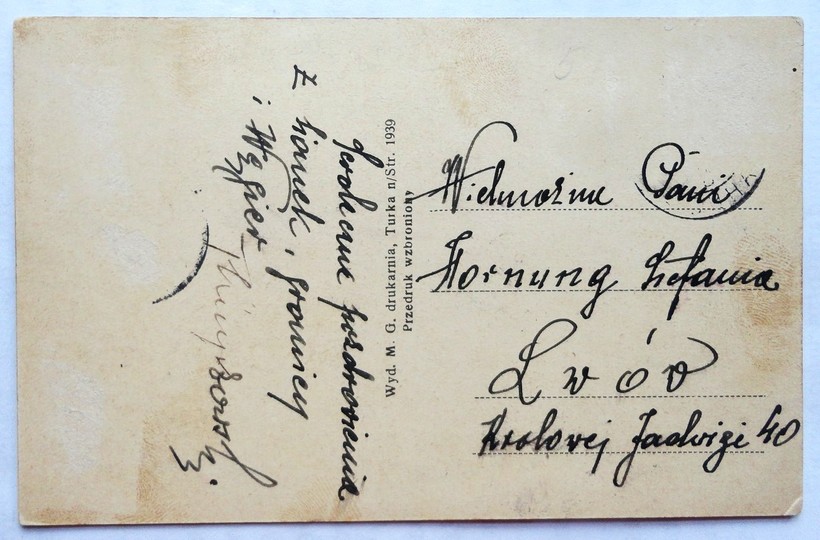 Serdeczne pozdrowienia
z Sianek, granicy
i Węgier
Wyd. M. G. drukarnia, Turka n/Str. 1939
Przedruk wzbroniony
Wielmożna Pani
Hornung Stefania
Lwów
Krolowej Jadwigi 40